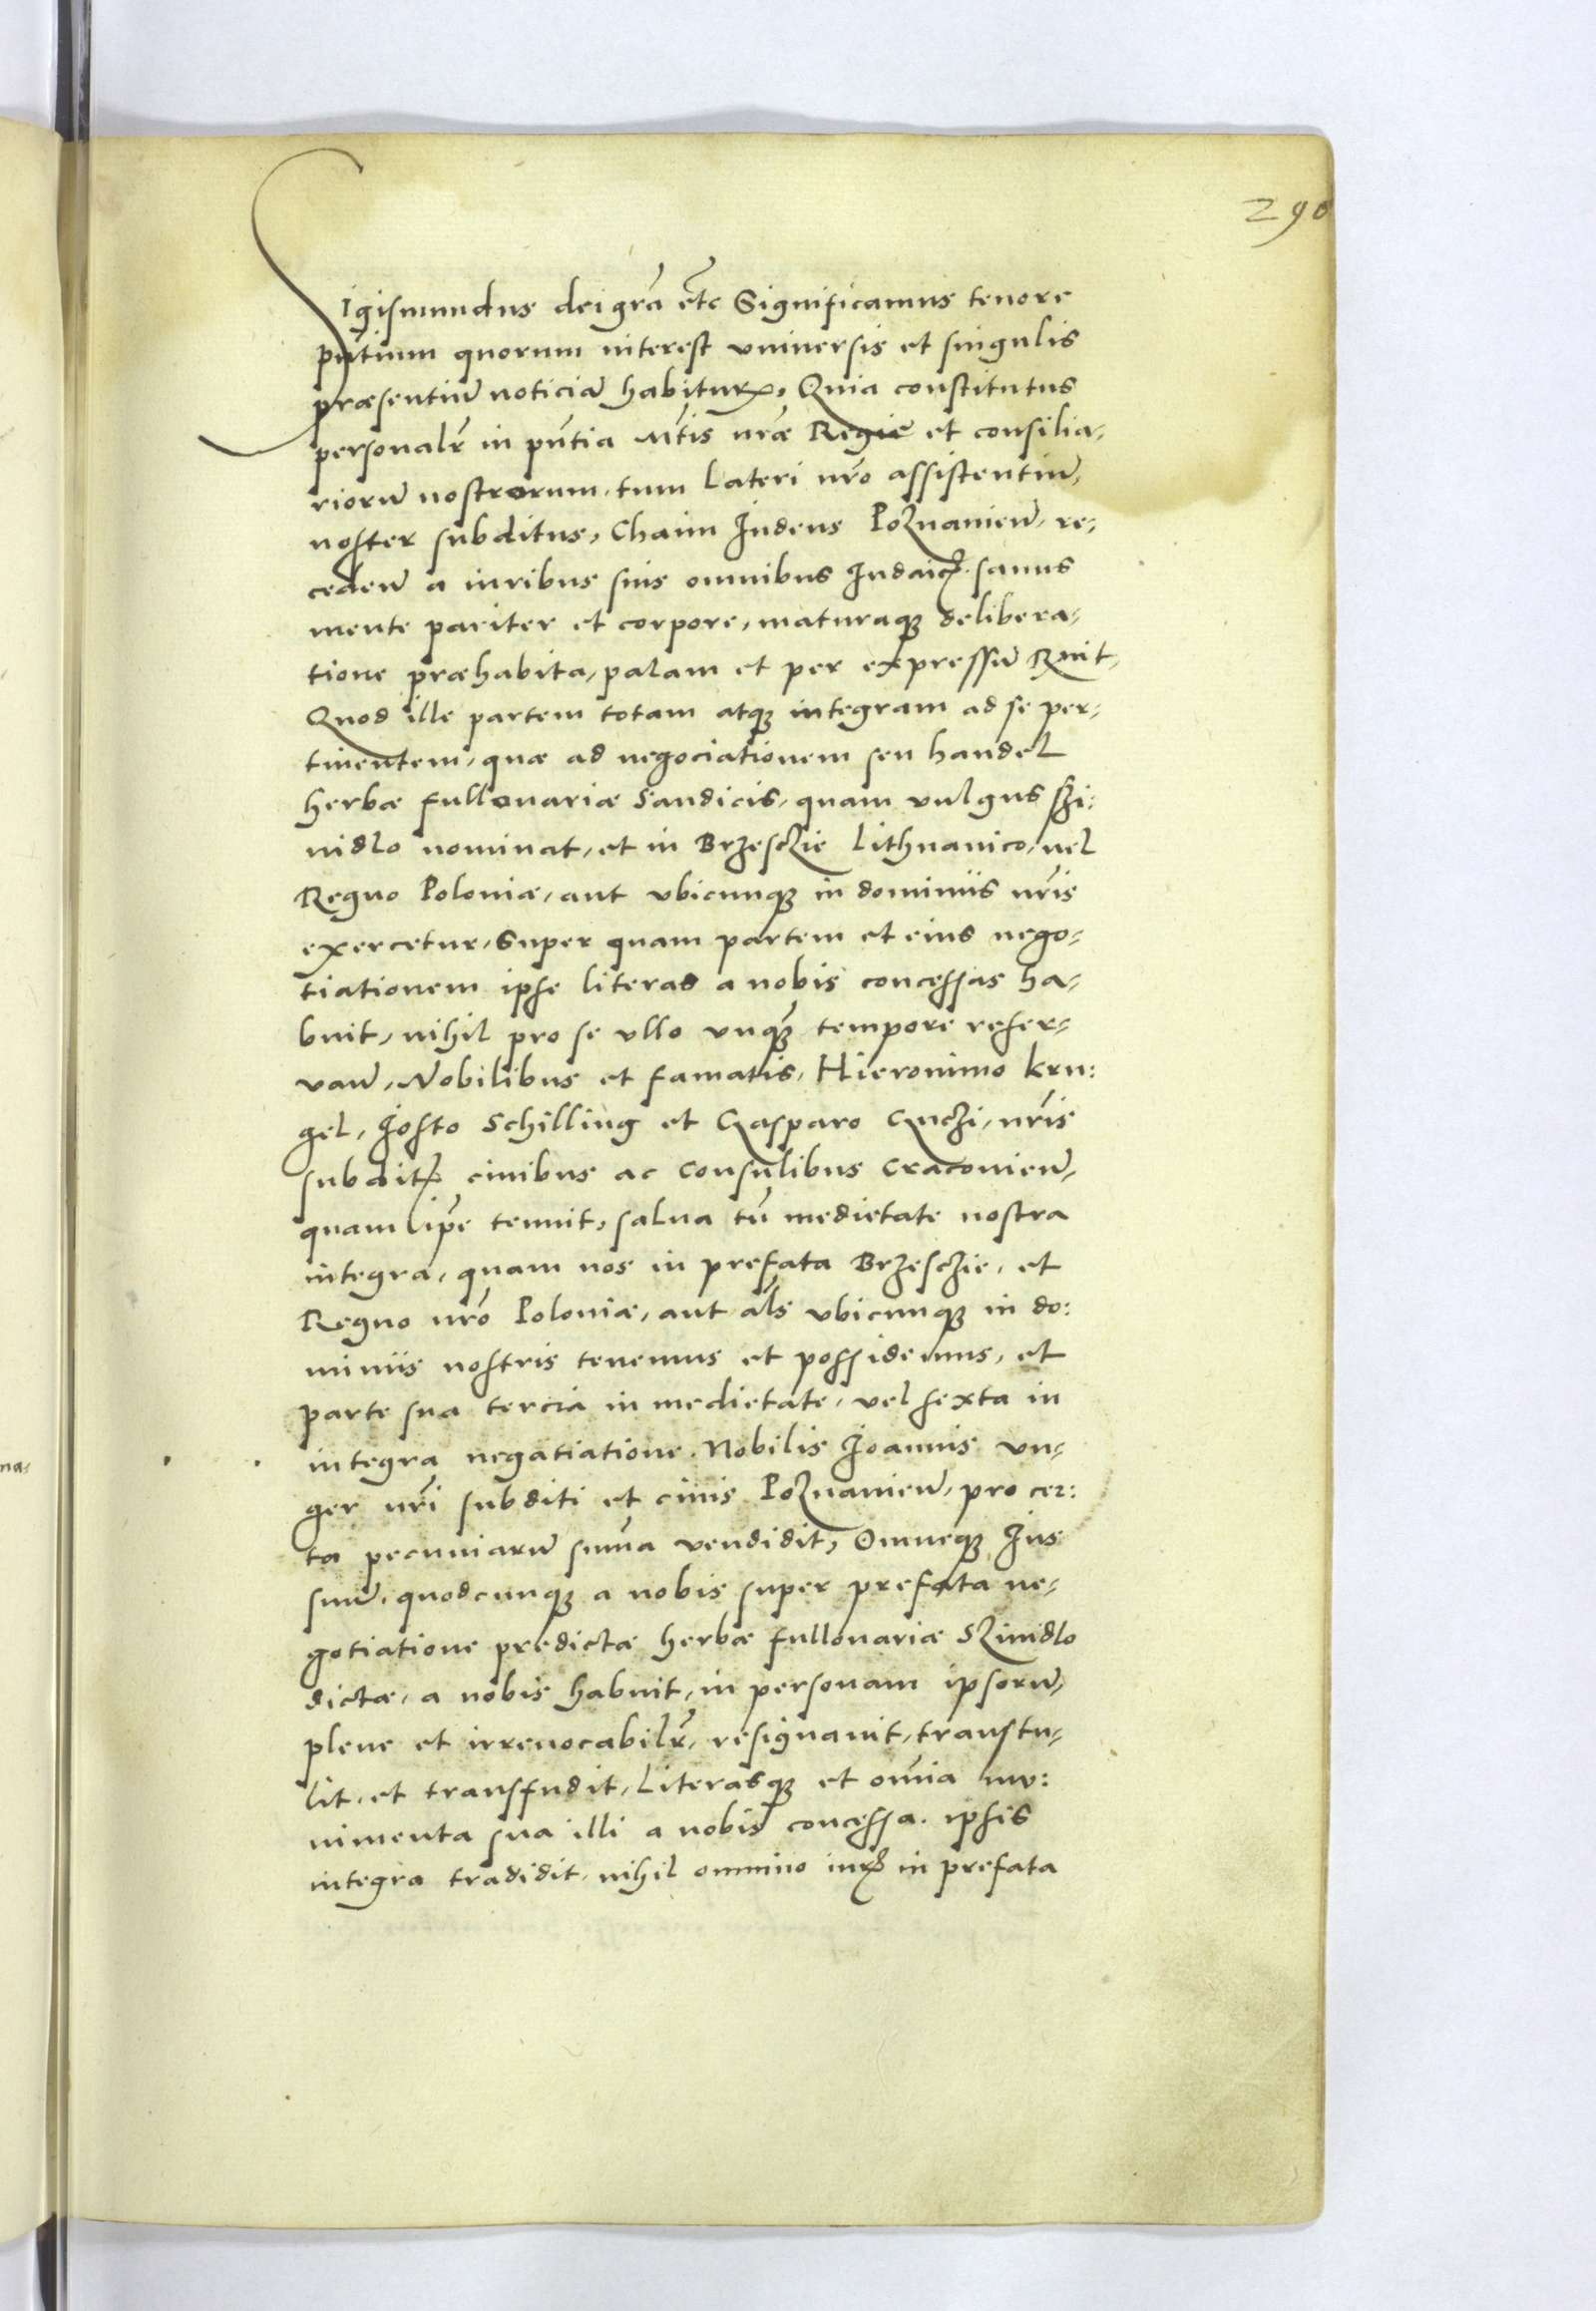 290
Sigismundus dei grã etc Significamus tenore
pñtium quorum interest vniuersis et singulis
præsentiũ noticiã habiturꝝ, Quia constitutus
personalr̃ in pñtia Mtis nrãe Regiæ et consilia-
riorũ nostrorum, tum lateri nrõ assistentiũ,
noster subditus, Chaim Iudeus Poznanieñ, re-
cedeñ a iuribus suis omnibus Iudaicꝭ, sanus
mente pariter et corpore, maturaqꝫ delibera-
tione præhabita, palam et per expressũ Rcuit,
Quod ille partem totam atqꝫ integram ad se per-
tinentem, quæ ad negociationem seu handel
herbæ fullonariæ Sandicis, quam vulgus szi:
nidlo nominat, et in Brzesczie Lithuanico, vel
Regno Poloniæ, aut vbicunqꝫ in dominiis nrĩs
exercetur, super quam partem et eius nego-
tiationem ipse literas a nobis concessas ha-
buit, nihil pro se vllo vnqꝫ tempore reser-
vañ, Nobilibus et famatis, Hieronimo kru:
gel, Iosto Schilling et Gasparo Guczi, nrĩs
subditꝭ ciuibus ac consulibus Cracouieñ,
quam ipẽ tenuit, salua tñ medietate nostra
integra, quam nos in prefata Brzesczie, et
Regno nrõ Poloniæ, aut als̃ vbicunqꝫ in do:
miniis nostris tenemus et possidemus, et
parte sua tercia in medietate, vel sexta in
integra negatiatione. Nobilis Ioannis vn-
ger nrĩ subditi et ciuis Poznanieñ, pro cer:
ta pecuniarũ sum̃a vendidit, Omneqꝫ Ius
suũ, quodcunqꝫ a nobis super prefata ne-
gotiatione predictæ herbæ fullonariæ Szinidlo
dictæ, a nobis habuit, in personam ipsorũ,
plene et irreuocabilr̃, resignauit, transtu-
lit, et transfudit, Literasqꝫ et om̃ia mu:
nimenta sua illi a nobis concessa. ipsis
integra tradidit, nihil omnino iurꝭ in prefata